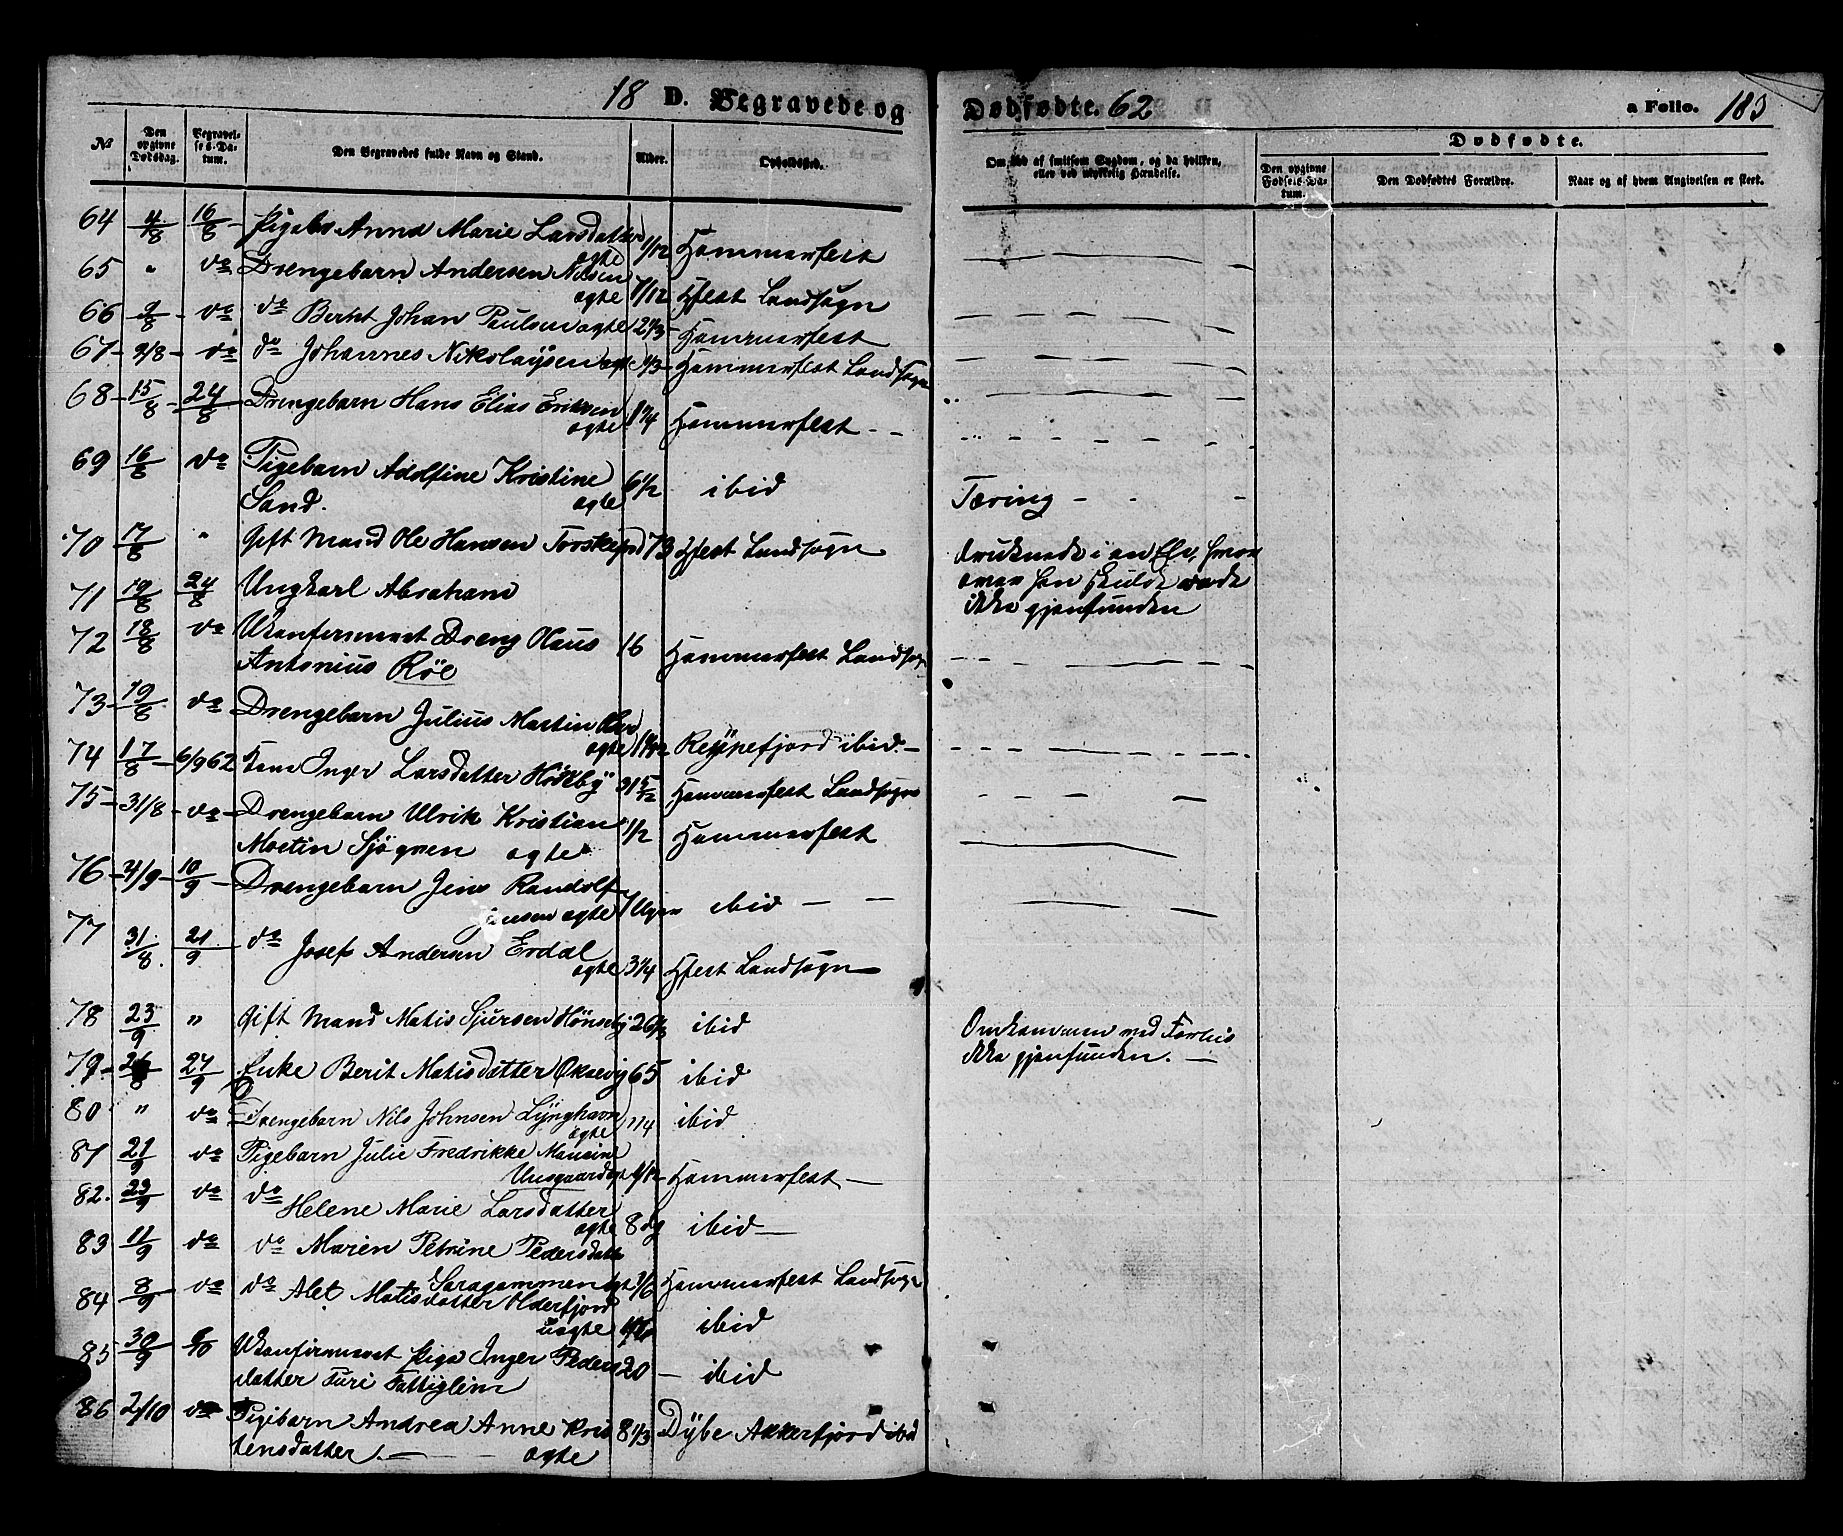 18 D. Begravede og Dødfødte. 62 a Folio. 183
№
Den opgivne Dødsdag.
Begravelses-Datum.
Den Begravedes fulde Navn og Stand.
Alder.
Opholdssted.
Om død af smitsom Sygdom, og da hvilken, eller ved ulykkelig Hændelse.
Dødfødte.
Den opgivne Fødsels-Datum.
Den Dødfødtes Forældre.
Naar og af hvem Angivelsen er skeet.
64 4/8 16/8 Pigebn Anna Marie Larsdatter
ægte 1/12 Hammerfest
65 " do Drengebarn Andersen Nilsen
ægte 1/12 Hfest Landsogn
66 9/8 do do Bernt Johan Paulsen ægte 2 1/3 Hammerfest
67 2/8 do do Johannes Nikolaysen ægte 1/3 Hammerfest Landsogn
68 15/8 24/8 Drengebarn Hans Elias Eriksen
ægte 1 3/4 Hammerfest
69 16/8 do Pigebarn Adolfine Kristine
Sand. ægte 6 1/2 ibid Tæring
70 17/8 " Gift Mand Ole Hansen Torskefjord 73 Hfest Landsogn druknede i en Elv, hvor
71 19/8 24/8 Ungkarl Abraham
over han skulde vade
ikke gjenfunden
72 18/8 do Ukonfirmeret Dreng Olaus 16 Hammerfest Landsogn
Antonius Röe
73 19/8 do Drengebarn Julius Martin
ægte Reppefjord ibid.
74 17/8 6/9 62 Kone Inger Larsdatter 31 5/12 Hammerfest Landsogn
75 31/8 do Drengebarn Ulrik Kristian 1/2 Hammerfest
Martin Sjögren ægte
76 4/9 10/9 Drengebarn Jens Randolf
Jensen ægte 7 Uger ibid
77 31/8 21/9 do Josef Andersen Erdal
ægte 3 1/4 Hfest Landsogn
78 23/9 " Gift Mand Matis Sjursen Hönseby 26 ibid Omkommen ved Forlis
ikke gjenfunden.
79 24/9 Enke Berit Matisdatter Oksevig 65 ibid
80 " do Drengebarn Nils Johnsen Lynghavn
ægte 1 1/4 ibid
81 21/9 do Pigebarn Julie Fredrikke
Hammerfest
82. 22/9 do do Helene Marie Larsdatter
ægte 8 dg ibid
83 11/9 do do Maren Petrine Pedersdatt
Saragammen 1/6 Hammerfest Landsogn
84 8/9 do do Alet Matisdatter Olderfjord
uægte ibid
85 30/9 Ukonfirmeret Pige Inger Peders 20 ibid
datter Furi Fattiglem
86 2/10 do Pigebarn Andrea Anne Kris 8 1/3 Dybe Akkerfjord ibid
tensdatter. ægte